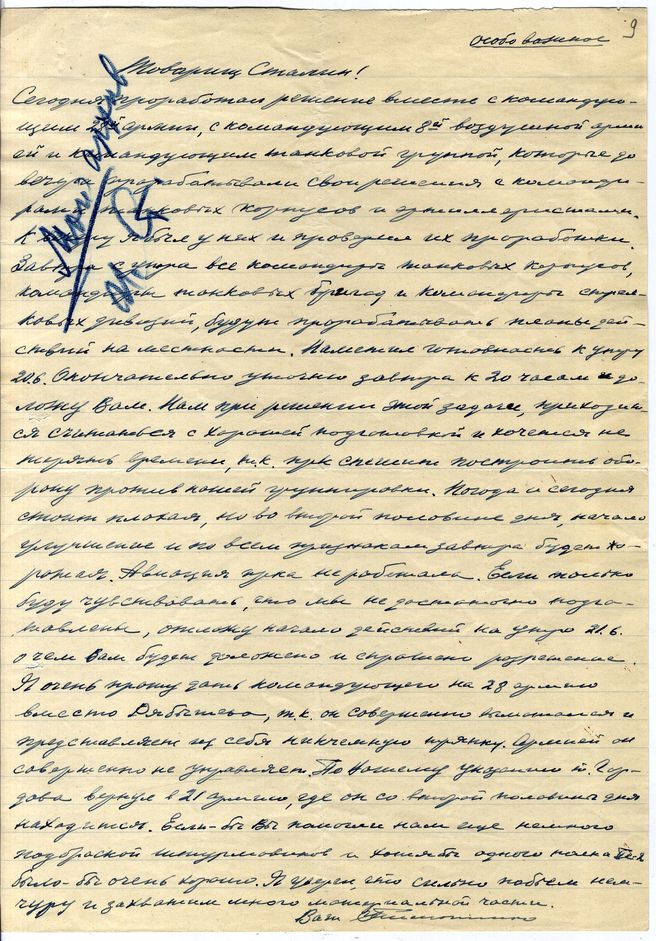 9
особо важное
Товарищ Сталин!
Сегодня проработал решение вместе с командую-
щим армии, с командующим 8й воздушной арми
ей и командующим танковой группой, которые до
вечера прорабатывали свои решения с команди-
рами танковых корпусов и артиллеристами.
К я был у них и проверил их проработки.
Завтра с утра все командиры танковых корпусов,
командиры танковых бригад и командиры стрел-
ковых дивизий, будут прорабатывать планы дей-
ствий на местности. Наметил готовность к утру
20.6. Окончательно уточню завтра к 20 часам и до-
ложу Вам. Нам при решении этой задачи, приходит-
ся считаться с хорошей подготовкой и хочется не
терять времени, т.к. пр-к спешит построить обо-
рону против нашей группировки. Погода и сегодня
стоит плохая, но во второй половине дня, начало
улучшение и по всем признакам завтра будет хо-
рошая. Авиация пр-ка не работала. Если только
буду чувствовать, что мы не достаточно подго-
товлены, отложу начало действий на утро 21.6.
о чем Вам будет доложено и спрошено разрешение.
Я очень прошу дать командующего на 28 армию
вместо Рябышева, т.к. он совершенно вымотался и
представляет из себя никчемную тряпку. Армией он
совершенно не управляет. По Вашему указанию т. Гор-
дова вернул в 21 армию, где он со второй половины дня
находится. Если-бы Вы помогли нам еще немного
подброской штурмовиков и хотя бы одного полка
было-бы очень хорошо. Я уверен, что сильно побьем нем-
чуру и захватим много материальной части.
Ваш С. Тимошенко
Мой архив